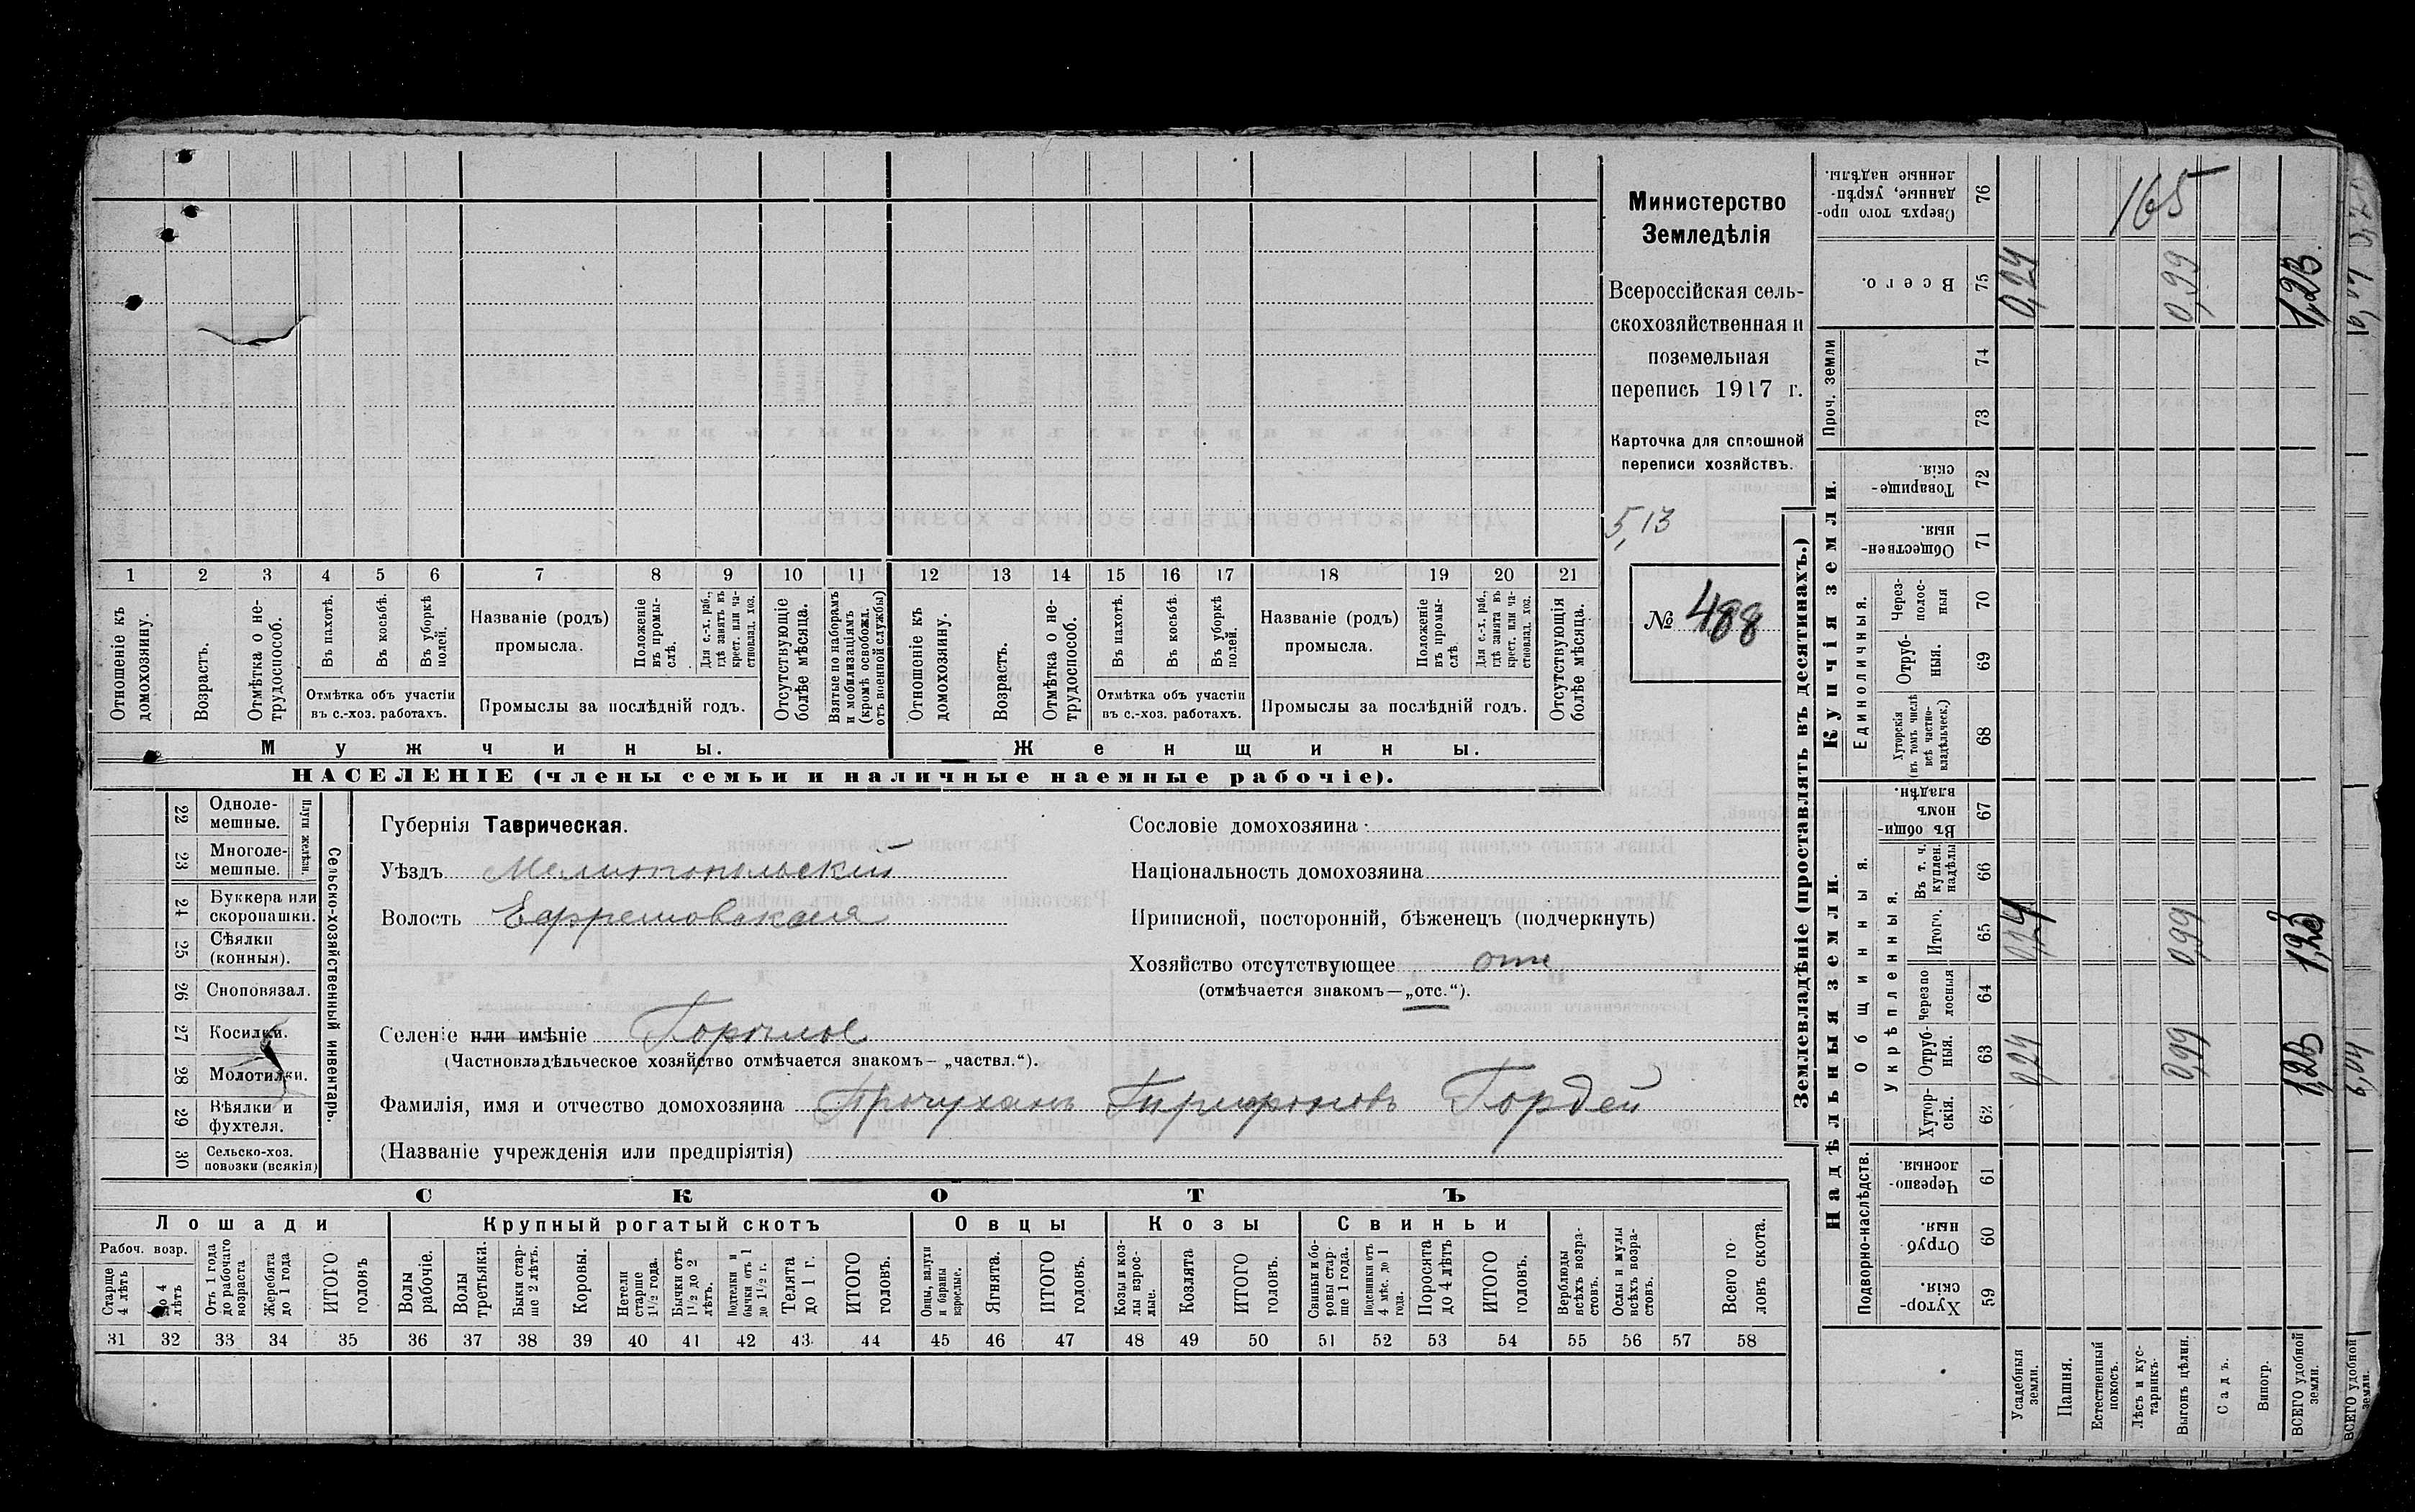 Министерство
Земледѣлія
Всероссійская сель-
скохозяйственная и
поземельная
перепись 1917 г.
Карточка для сплошной
переписи хозяйствъ.
5,13
№ 488
1 2 3 4 5 6 7 8 9 10 11 12 13 14 15 16 17 18 19 20 21
Отношеніе къ домохозяину.
Возрастъ.
Отмѣтка о не-трудоспособ.
Въ пахотѣ.
Въ косьбѣ.
Въ уборкѣ полей.
Отмѣтка объ участіи въ с.-хоз. работахъ.
Названіе (родъ) промысла.
Положеніе въ промы-слѣ.
Для с.-х. раб., гдѣ занятъ въ крест. или ча-стновлад. хоз.
Промыслы за послѣдній годъ.
Отсутствующіе болѣе мѣсяца.
Взятые по наборамъ и мобилизаціямъ (кромѣ освобожд. отъ военной службы)
Отношеніе къ домохозяину.
Возрастъ.
Отмѣтка о не-трудоспособ.
Въ пахотѣ.
Въ косьбѣ.
Въ уборкѣ полей.
Отмѣтка объ участіи въ с.-хоз. работахъ.
Названіе (родъ) промысла.
Положеніе въ промы-слѣ.
Для с.-х. раб., гдѣ занята въ крест. или ча-стновлад. хоз.
Промыслы за послѣдній годъ.
Отсутствующія болѣе мѣсяца.
Мужчины.
Женщины.
НАСЕЛЕНІЕ (члены семьи и наличные наемные рабочіе).
22 Одноле-мешные.
23 Многоле-мешные.
Плуги желѣзн.
24 Буккера или скоропашки.
25 Сѣялки (конныя).
26 Сноповязал.
27 Косилки.
28 Молотилки.
29 Вѣялки и фухтеля.
30 Сельско-хоз. повозки (всякія)
Сельско-хозяйственный инвентарь.
Губернія Таврическая.
Уѣздъ Мелитопольский
Волость Ефремовская
Сословіе домохозяина
Національность домохозяина
Приписной, посторонній, бѣженецъ (подчеркнуть)
Хозяйство отсутствующее отс
(отмѣчается знакомъ—„отс.“).
Селеніе или имѣніе
(Частновладѣльческое хозяйство отмѣчается знакомъ— „частвл.“).
Фамилія, имя и отчество домохозяина Гордей
(Названіе учрежденія или предпріятія)
СКОТЪ
Лошади
Крупный рогатый скотъ
Овцы
Козы
Свиньи
Рабоч. возр.
Старше 4 лѣтъ
До 4 лѣтъ
Отъ 1 года до рабочаго возраста
Жеребята до 1 года
ИТОГО головъ
Волы рабочіе.
Волы третьяки.
Быки стар-ше 2 лѣтъ.
Коровы.
Нетели старше 1½ года.
Бычки отъ 1½ до 2 лѣтъ.
Подтелки и бычки отъ 1 до 1½ г.
Телята до 1 г.
ИТОГО головъ.
Овцы, валухи и бараны взрослые.
Ягнята.
ИТОГО головъ.
Козы и коз-лы взрос-лые.
Козлята
ИТОГО головъ.
Свиньи и бо-ровы стар-ше 1 года.
Подсвинки отъ 4 мѣс. до 1 года.
Поросята до 4 лѣтъ
ИТОГО головъ.
Верблюды всѣхъ возра-стовъ.
Ослы и мулы всѣхъ возра-стовъ.
Всего го-ловъ скота.
31 32 33 34 35 36 37 38 39 40 41 42 43 44 45 46 47 48 49 50 51 52 53 54 55 56 57 58
Землевладѣніе (проставлять въ десятинахъ.)
Сверхъ того про-данные, укрѣп-ленные надѣлы. 76
165
Всего. 75 0,24 0,99 1,23.
Проч. земли
74
73
Купчія земли.
Товарище-скія. 72
Обществен-ныя. 71
Единоличныя.
Через-полос-ныя 70
Отруб-ныя. 69
Хуторскія (въ томъ числѣ всѣ частно-владѣльческ.) 68
Надѣльныя земли.
Общинныя.
Въ общин-номъ владѣн. 67
Укрѣпленныя.
Въ т. ч. куплен. надѣлы 66
Итого. 65 0,24 0,99 1,23
Черезпо-лосныя 64
Отруб-ныя. 63 0,24 0,99 1,23
Хутор-скія. 62
Подворно-наслѣдств.
Черезпо-лосныя. 61
Отруб-ныя. 60
Хутор-скія. 59
Усадебныя земли.
Пашня.
Естественный покосъ.
Лѣсъ и кус-тарникъ.
Выгонъ цѣлин.
Садъ.
Виногр.
ВСЕГО удобной земли.
ВСЕГО удобной земли.